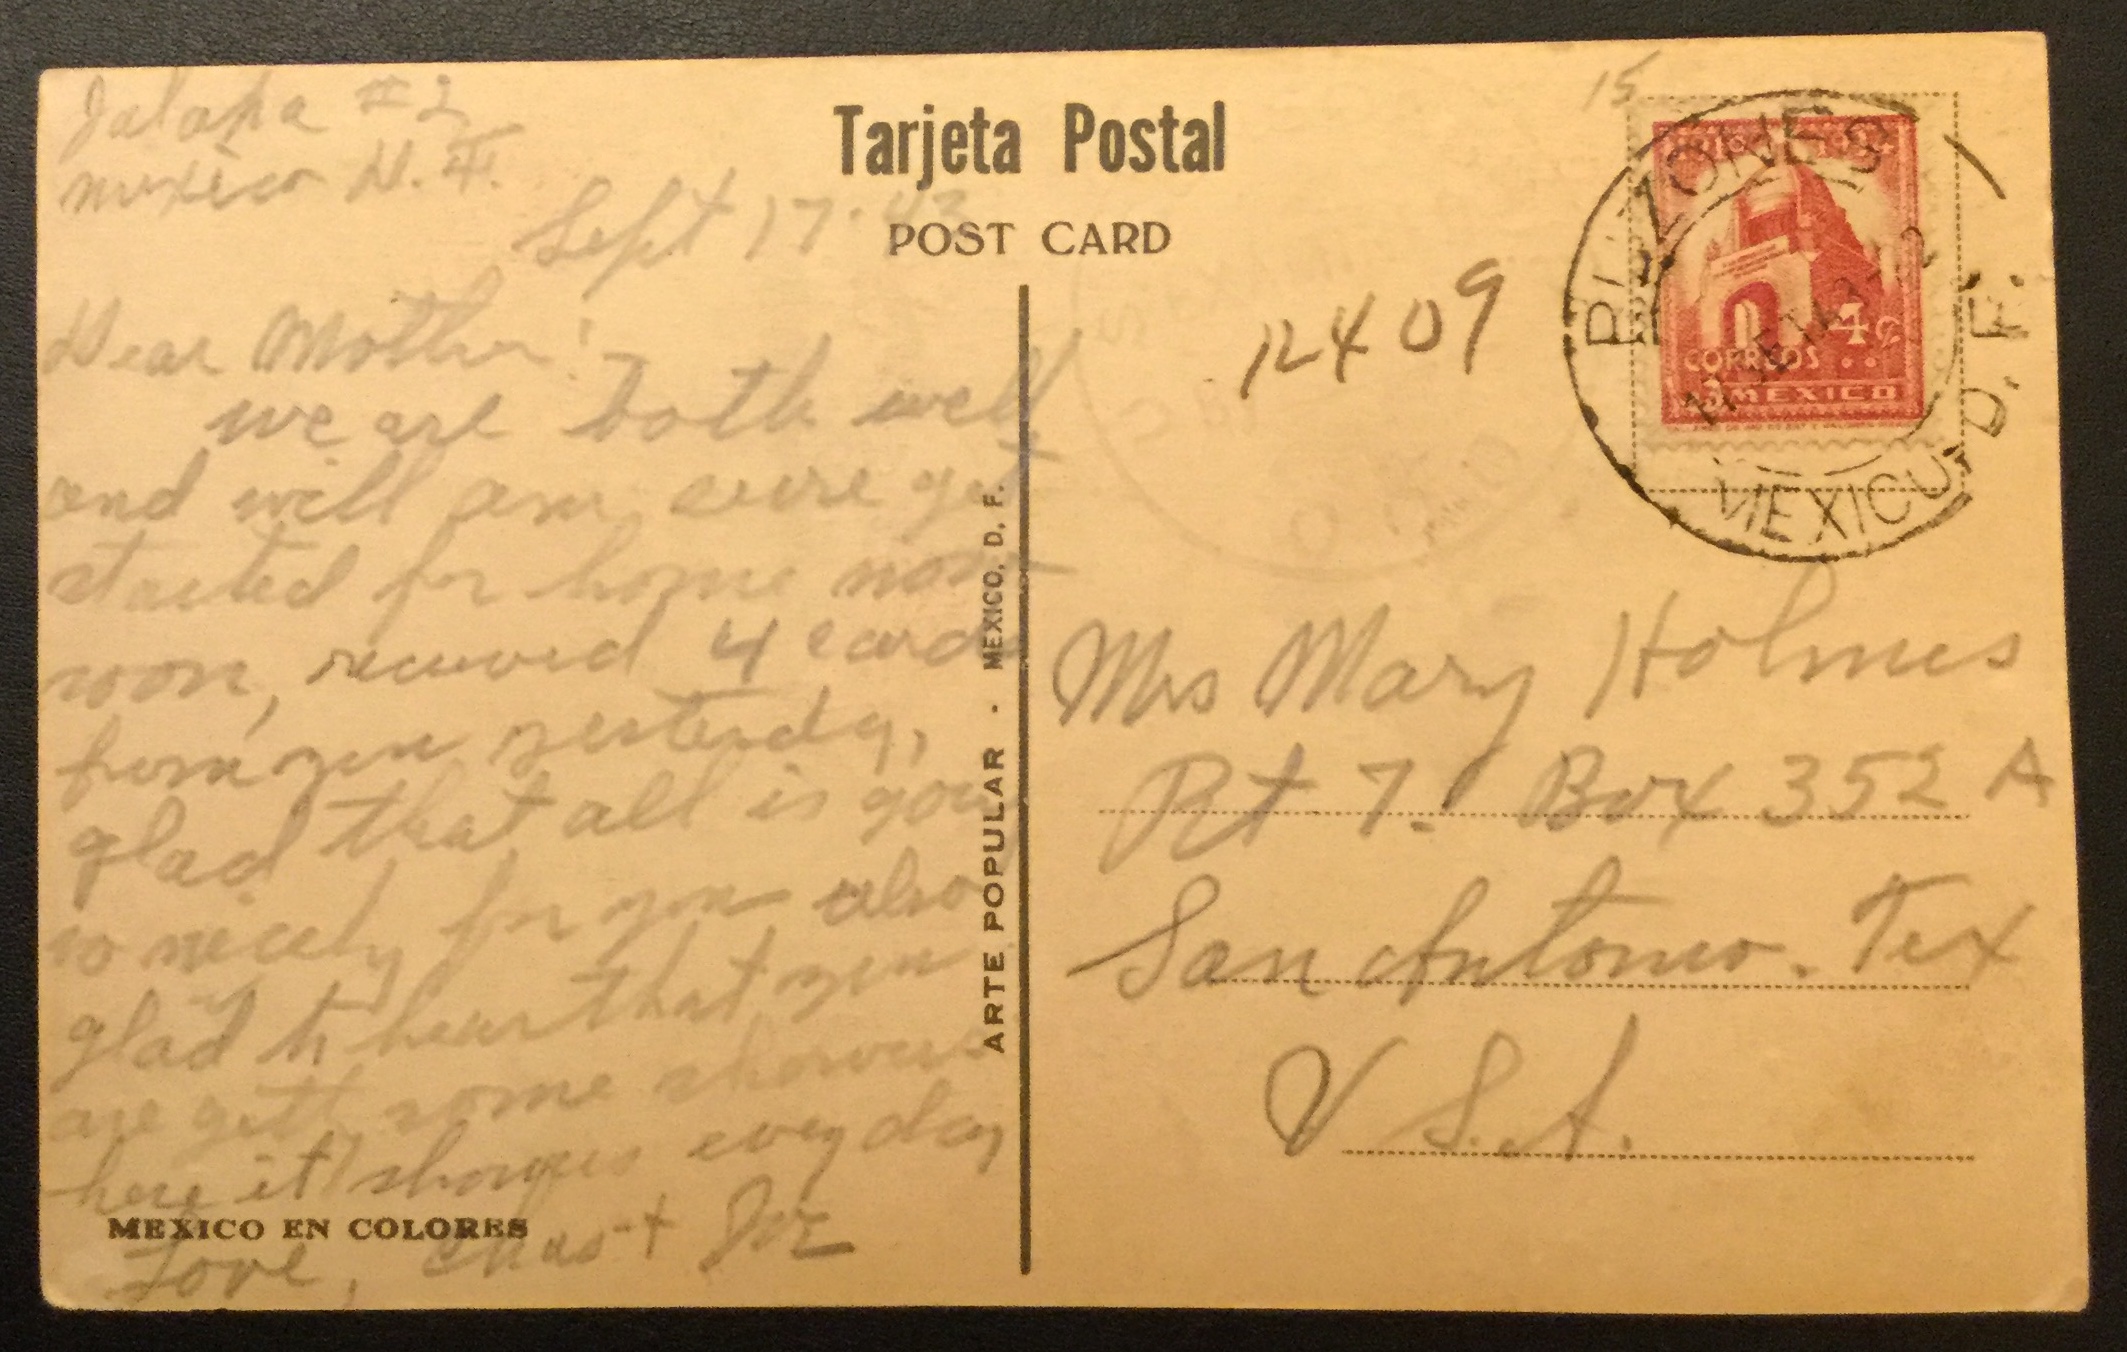 Jalapa #2
Mexico D.F.
Sept 17-43
Dear Mother:
we are both well
and will am sure get
started for home now
soon, received 4 cards
from you yesterday,
glad that all is going
so nicely for you also
glad to hear that you
are gett some showers
here it showers every day
Love, Chas + Joe
MEXICO EN COLORES
Tarjeta Postal
POST CARD
ARTE POPULAR - MEXICO, D. F.
15
12409
BUZONES
MEXICO, D. F.
4¢
CORREOS
MEXICO
Mrs Mary Holmes
Rt 7. Box 352 A
San Antonio. Tex
U.S.A.